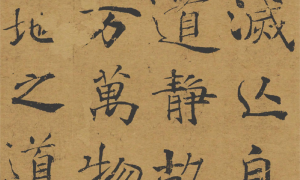 滅亾自
道靜故
万萬物
地之道